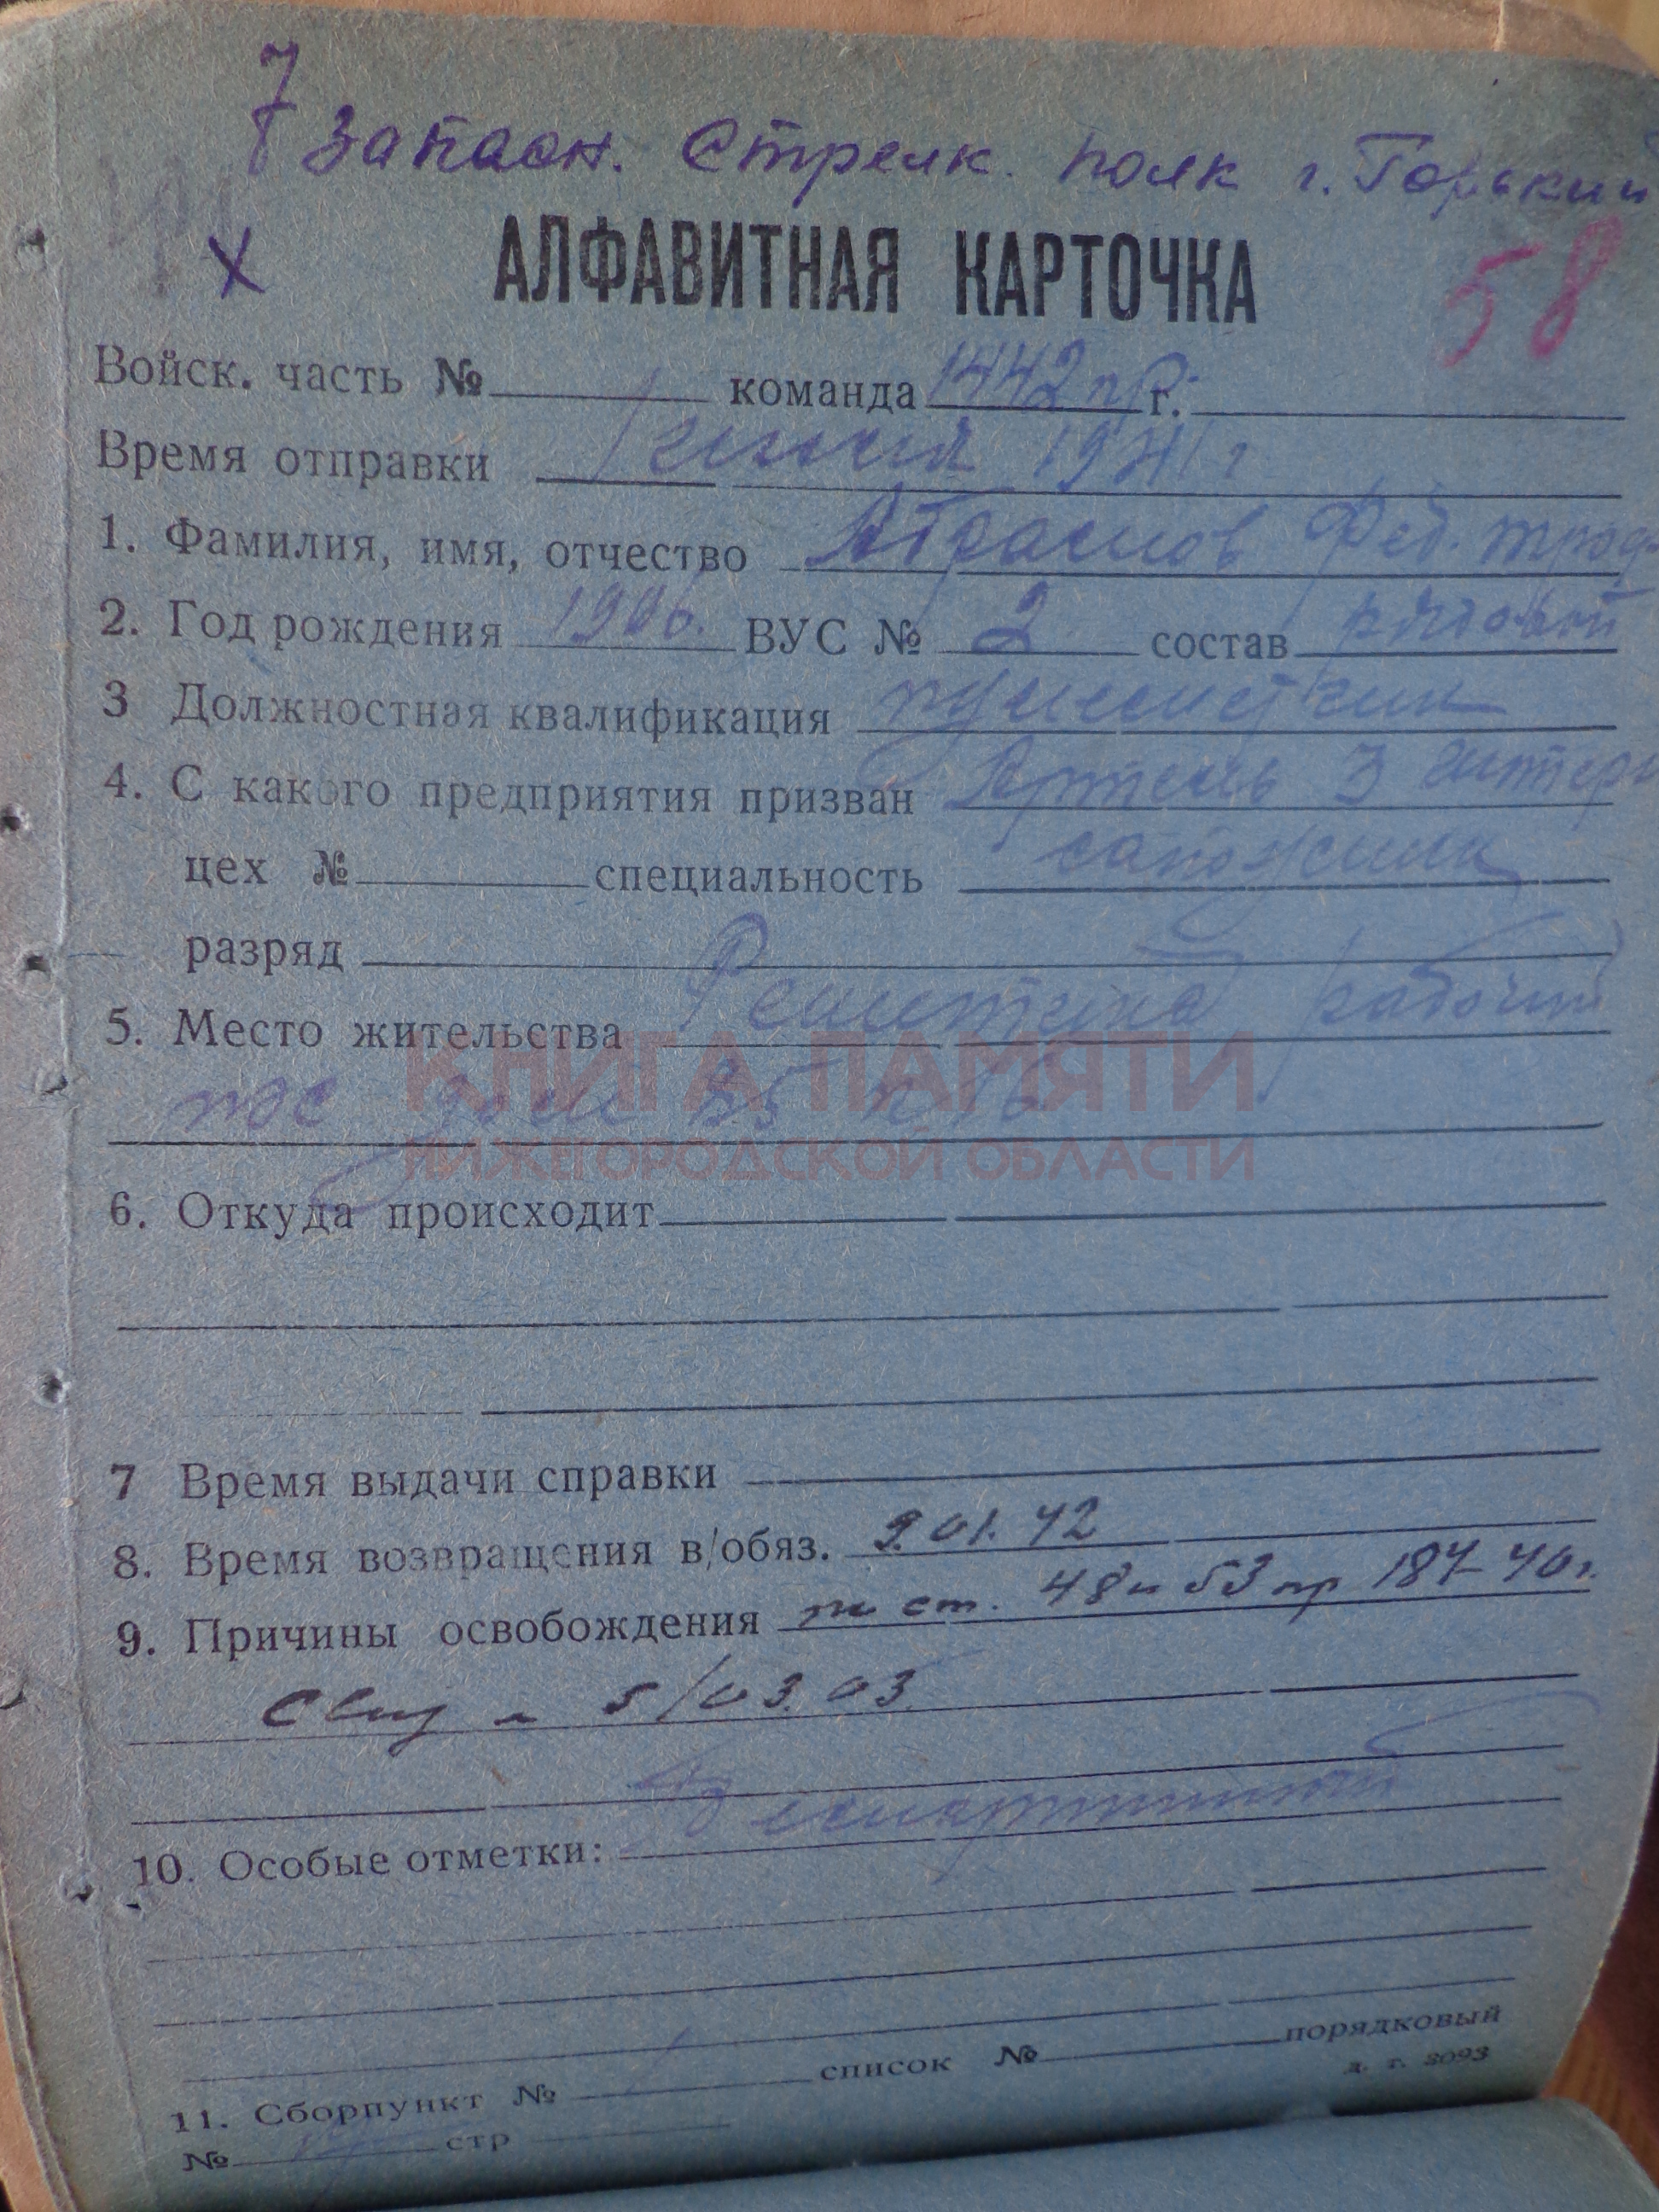 7 Запасн. Стрелк. полк г. Горький
х АЛФАВИТНАЯ КАРТОЧКА 58
Войск. часть № команда 1442 г.
Время отправки июля 1941 г
1. Фамилия, имя, отчество Абрамов Фед.
2. Год рождения 1906. ВУС № 2 состав рядовой
3 Должностная квалификация
4. С какого предприятия призван Артель 3
цех № специальность сапожник
разряд
5. Место жительства Решетиха рабочий
пос дом 35
КНИГА ПАМЯТИ
НИЖЕГОРОДСКОЙ ОБЛАСТИ
6. Откуда происходит
7 Время выдачи справки
8. Время возвращения в/обяз. 9.01.42
9. Причины освобождения по ст. 48 и 53 пр 184-40г.
5/03.03
10. Особые отметки: Беспартийный
11. Сборпункт № список № порядковый
№ стр
з. г. 3093